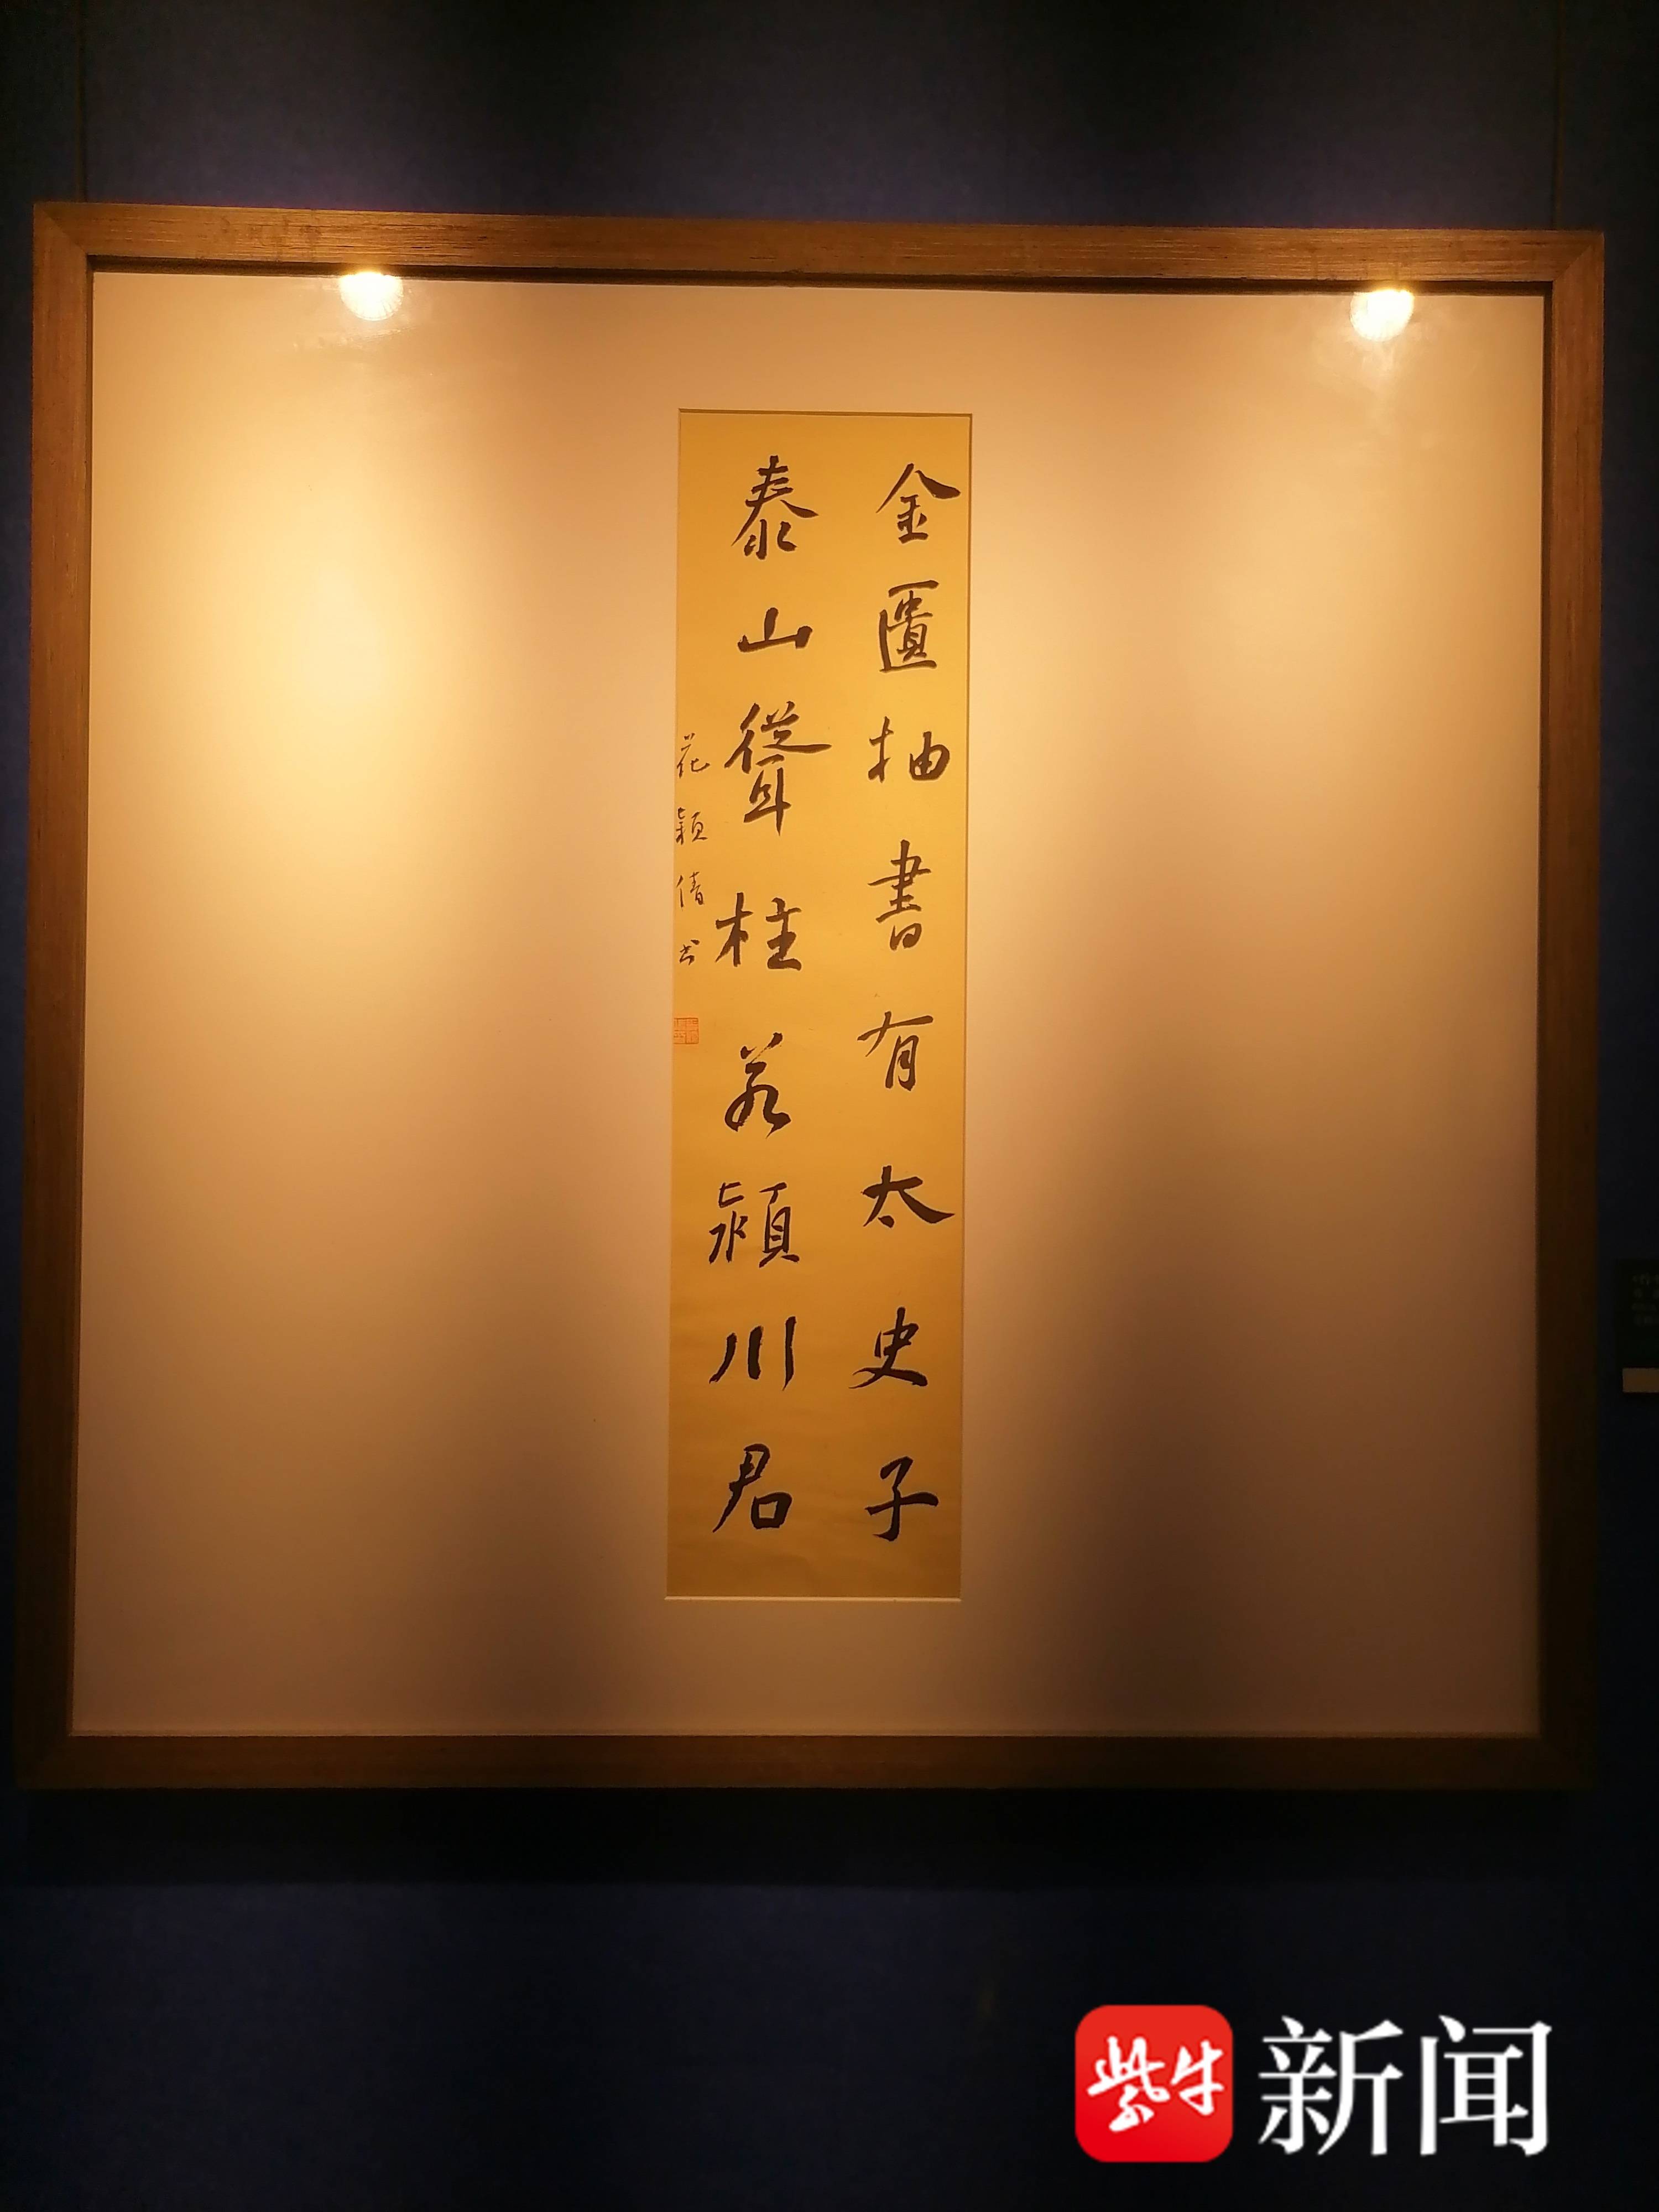 金匱抽書有太史子
泰山聳柱若潁川君
花穎倩书
紫牛
新闻